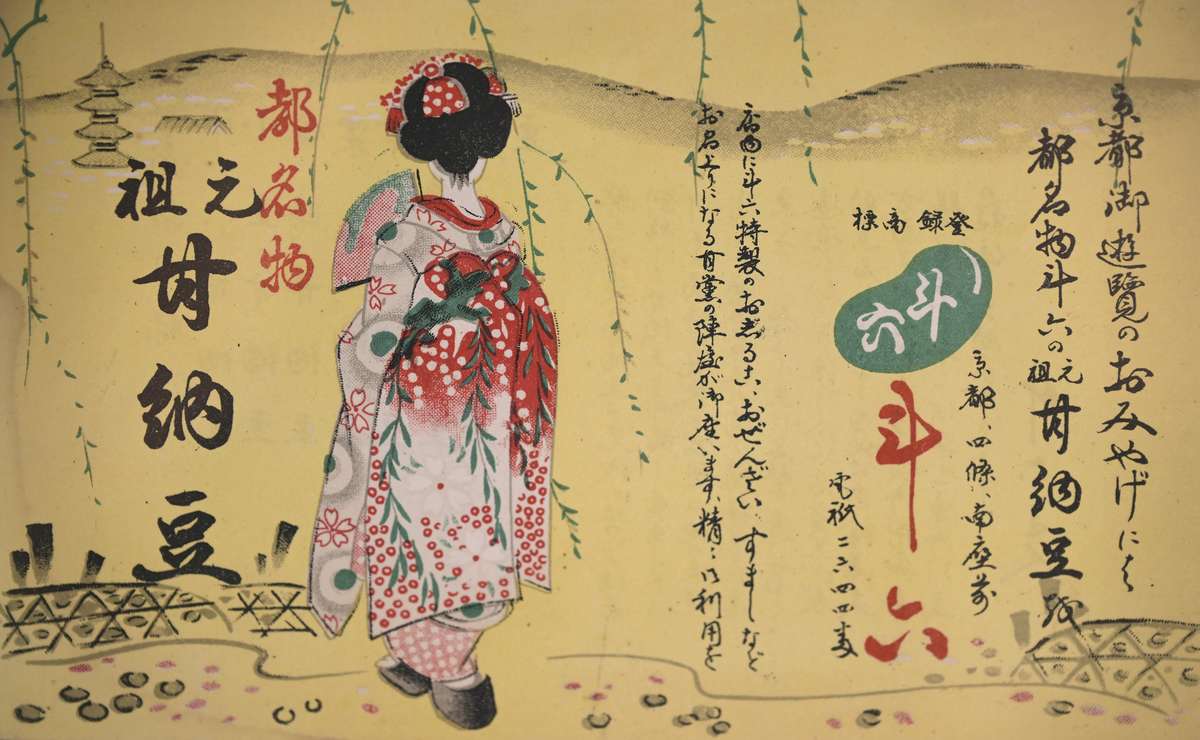 京都御遊覽のおみやげには
都名物斗六の元祖甘納豆を
登録商標
斗六
京都、四條、南座前
斗六
電祇二六四四番
店内に斗六特製のお志るこ、おぜんざい、すましなど
お召上りになる甘黨の陣が御座います、精々御利用を
都名物
元祖
甘納豆